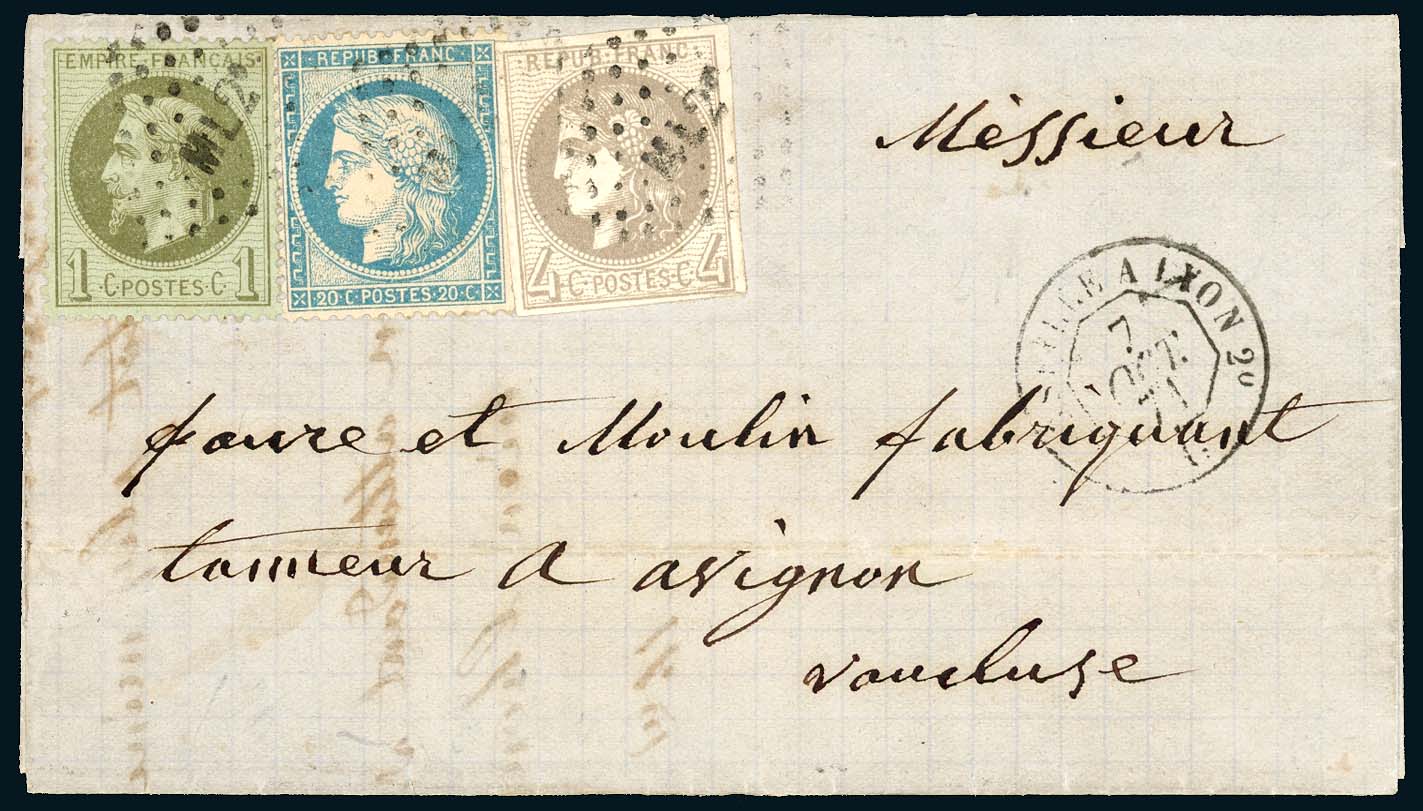 EMPIRE FRANCAIS
1 C·POSTES·C 1
ML2
REPUB·FRANC
20·C·POSTES·20·C
REPUB·FRANC
4 C·POSTES·C 4
ML2
Mèssieur
A LYON 2°
7
OCT.
71
faure et Moulin fabriquant
tanneur a avignon
vaucluse